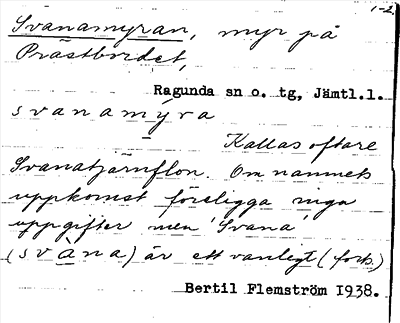 1-2
Svanamyran, myr på
Prästbordet,
Ragunda sn o. tg, Jämtl.l.
svanamýra
Kallas oftare
Svanatjärnflon. Om namnets
uppkomst föreligga inga
uppgifter men 'Svana'
(svàna) är ett vanligt (forts.)
Bertil Flemström 1938.